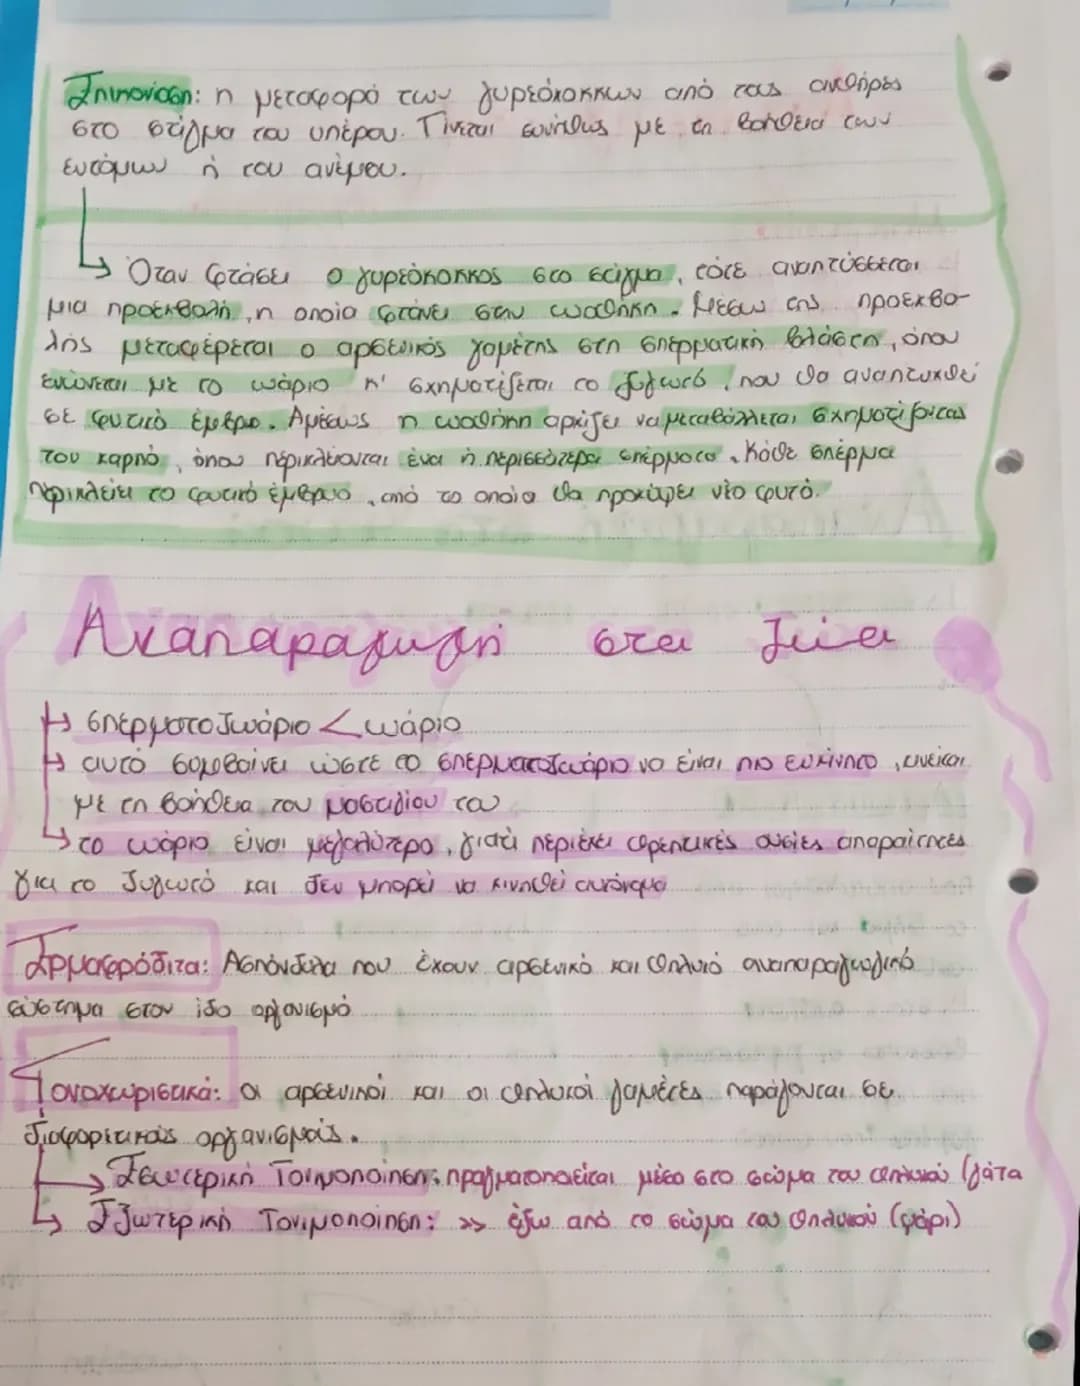 Επικονίαση: η μεταφορά των γυρεόκοκκων από τους ανθήρες
στο στίγμα του υπέρου. Γίνεται συνήθως με τη βοήθεια των
εντόμων ή του ανέμου.
Όταν φτάσει ο γυρεόκοκκος στο στίγμα, τότε αναπτύσσεται
μια προεκβολή, η οποία φτάνει στην ωοθήκη. Μέσω της προεκβο-
λής μεταφέρεται ο αρσενικός γαμέτης στη σπερματική βλάστη, όπου
ενώνεται με το ωάριο κ' σχηματίζεται το ζυγωτό, που θα αναπτυχθεί
σε φυτικό έμβρυο. Αμέσως η ωοθήκη αρχίζει να μεταβάλλεται σχηματίζοντας
τον καρπό, όπου περικλείονται ένα ή περισσότερα σπέρματα. Κάθε σπέρμα
περικλείει το φυτικό έμβρυο, από το οποίο θα προκύψει νέο φυτό.
Αναπαραγωγή στα ζώα
σπερματοζωάριο < ωάριο
αυτό συμβαίνει ώστε το σπερματοζωάριο να είναι πιο ευκίνητο, κινείται
με τη βοήθεια του μαστιγίου του
το ωάριο είναι μεγαλύτερο, γιατί περιέχει θρεπτικές ουσίες απαραίτητες
για το ζυγωτό και δεν μπορεί να κινηθεί αυτόνομα
Ερμαφρόδιτα: Ασπόνδυλα που έχουν αρσενικό και θηλυκό αναπαραγωγικό
σύστημα στον ίδιο οργανισμό
Γονοχωριστικά: οι αρσενικοί και οι θηλυκοί γαμέτες παράγονται σε
διαφορετικούς οργανισμούς.
Εσωτερική Γονιμοποίηση: πραγματοποιείται μέσα στο σώμα του θηλυκού (γάτα
Εξωτερική Γονιμοποίηση: >> έξω από το σώμα του θηλυκού (ψάρι)